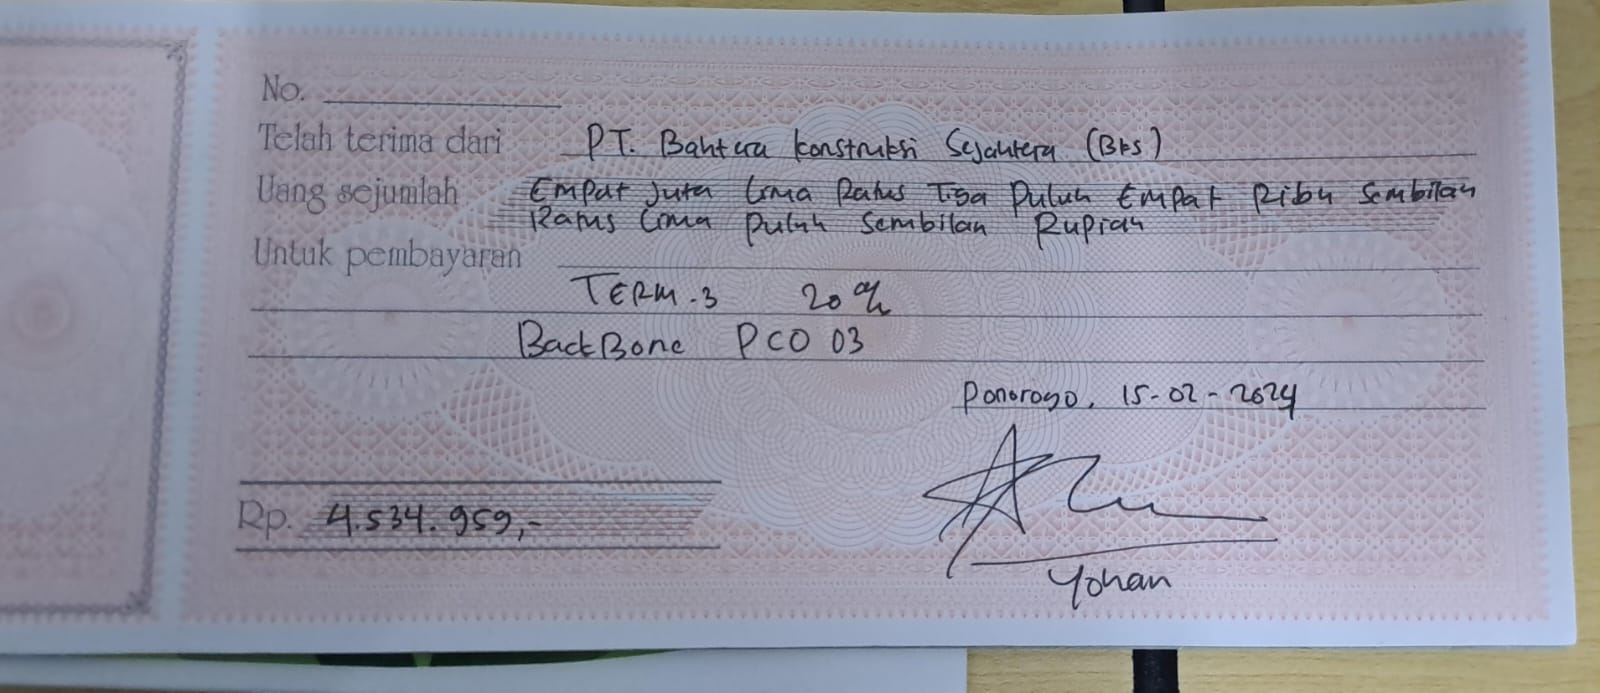 No.
Telah terima dari PT. Bahtera Konstruksi Sejahtera (BKS)
Uang sejumlah Empat Juta Lima Ratus Tiga Puluh Empat Ribu Sembilan
Ratus Lima Puluh Sembilan Rupiah
Untuk pembayaran
TERM-3 20%
BackBone PCO 03
Ponorogo, 15-02-2024
Rp. 4.534.959,-
Yohan